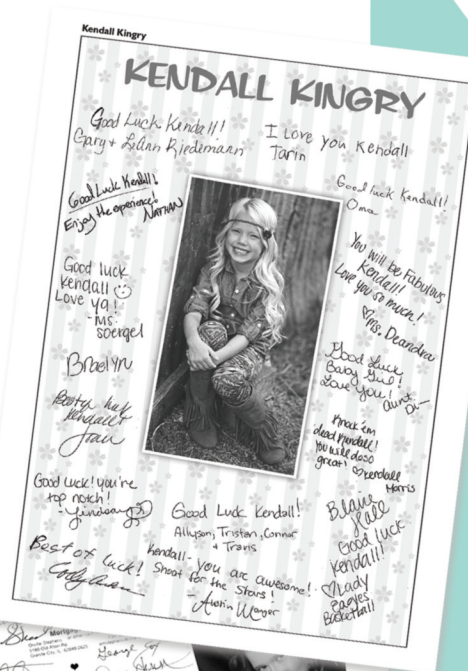 Kendall Kingry
KENDALL KINGRY
Good Luck Kendall!
Gary + LeAnn Riedemann
I Love you Kendall
Tarin
Good Luck Kendall!
Enjoy the experience!
NATHAN
Good luck Kendall!
Oma
Good luck
Kendall
Love ya!
-Ms.
Soergel
You will be Fabulous
Kendall!
Love you so much!
♡Ms. Deandra
Braelyn
Good Luck
Baby Girl!
Love You!
Aunt
Di
Kendall
Knock 'em
dead Kendall!
You will do so
great! ♡Kendall
Morris
Good Luck! you're
top notch!
-Lindsay
Good Luck Kendall!
Allyson, Tristan, Connor
+ Travis
Blaire
Hall
Good luck
Kendall!
♡Lady
Eagles
Basketball
Best of luck!
Kendall- you are awesome!
Shoot for the Stars!
-Austin
Mortgage
Granite City, IL
George